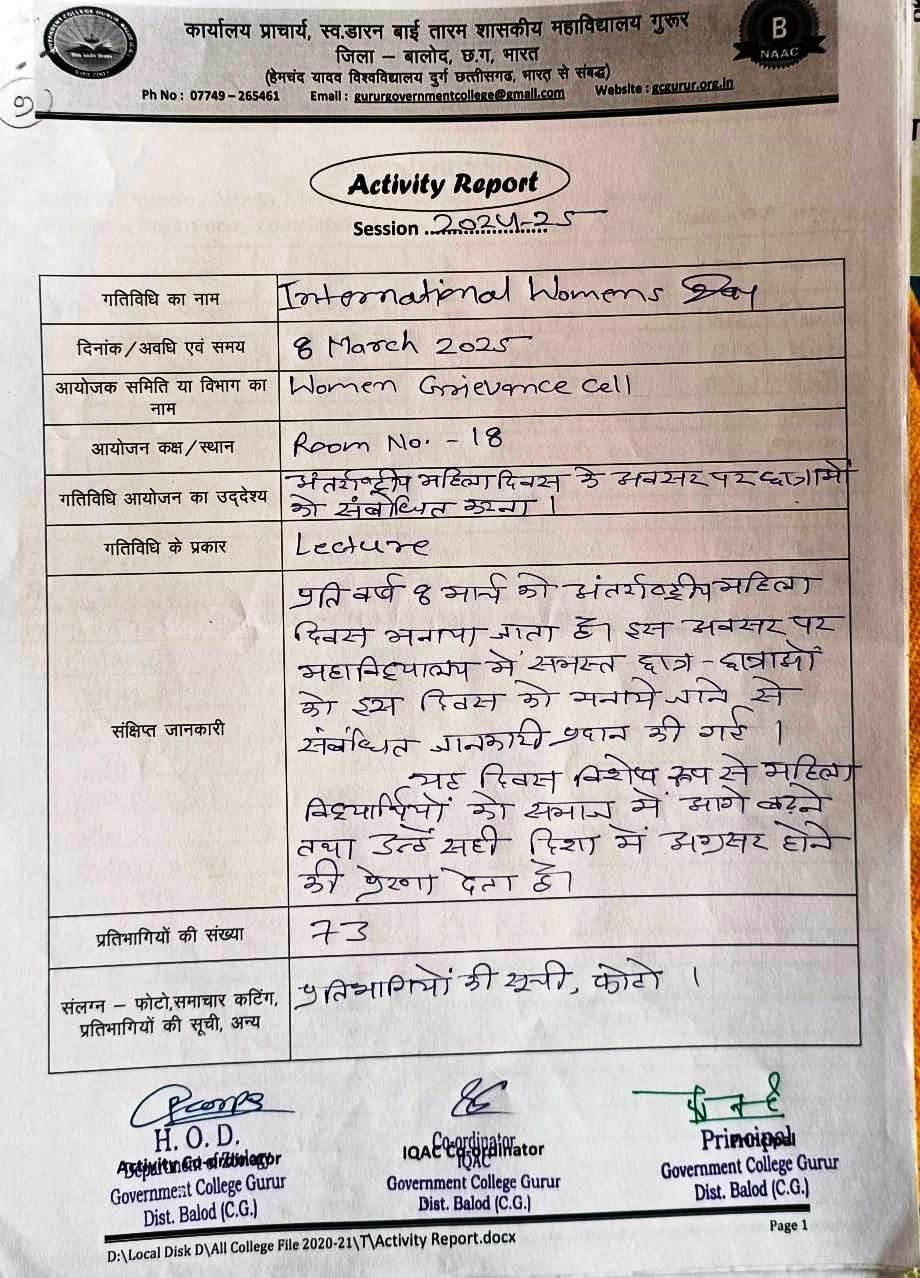 कार्यालय प्राचार्य, स्व.डारन बाई तारम शासकीय महाविद्यालय गुरूर
जिला – बालोद, छ.ग, भारत
(हेमचंद यादव विश्वविद्यालय दुर्ग छत्तीसगढ, भारत से संबद्ध)
Ph No : 07749 – 265461 Email : gururgovernmentcollege@gmail.com Website : gcgurur.org.in
B
NAAC
Activity Report
Session 2024-25
गतिविधि का नाम International Womens Day
दिनांक/अवधि एवं समय 8 March 2025
आयोजक समिति या विभाग का Women Grievance Cell
नाम
आयोजन कक्ष/स्थान Room No. - 18
गतिविधि आयोजन का उद्देश्य अंतर्राष्ट्रीय महिला दिवस के अवसर पर छात्राओं
को संबोधित करना ।
गतिविधि के प्रकार Lecture
संक्षिप्त जानकारी
प्रति वर्ष 8 मार्च को अंतर्राष्ट्रीय महिला
दिवस मनाया जाता है। इस अवसर पर
महाविद्यालय में समस्त छात्र-छात्राओं
को इस दिवस को मनाये जाने से
संबंधित जानकारी प्रदान की गई ।
यह दिवस विशेष रूप से महिला
विद्यार्थियों को समाज में आगे बढ़ने
तथा उन्हें सही दिशा में अग्रसर होने
की प्रेरणा देता है।
प्रतिभागियों की संख्या 73
संलग्न – फोटो,समाचार कटिंग, प्रतिभागियों की सूची, फोटो ।
प्रतिभागियों की सूची, अन्य
H. O. D. Co-ordinator Principal
Activity Co-ordinator IQAC Co-ordinator
Department of Zoology IQAC
Government College Gurur Government College Gurur Government College Gurur
Dist. Balod (C.G.) Dist. Balod (C.G.) Dist. Balod (C.G.)
D:\Local Disk D\All College File 2020-21\T\Activity Report.docx Page 1